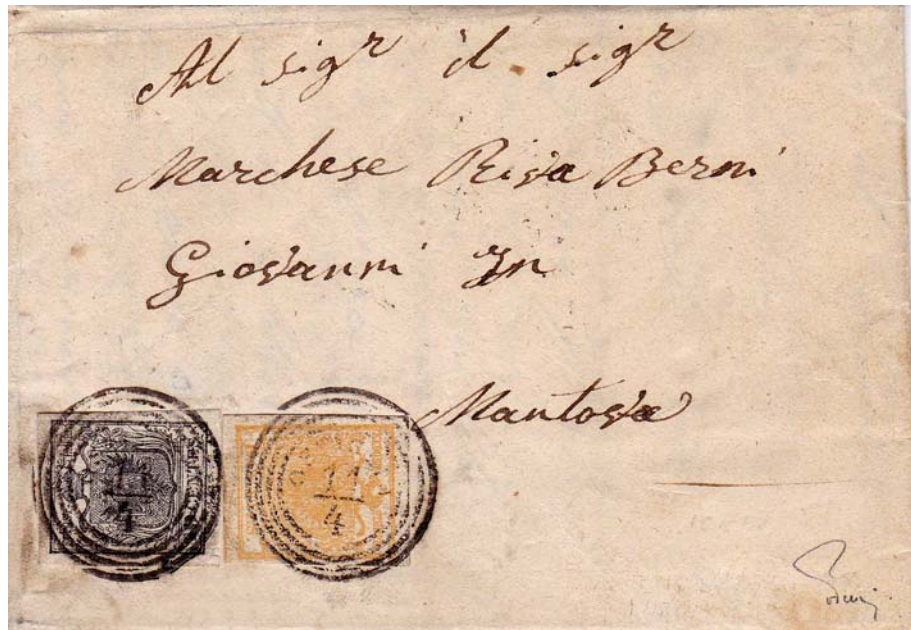 Al sigr il sigr
Marchese Riva Berni
Giovanni In
Mantova
11
4
11
4